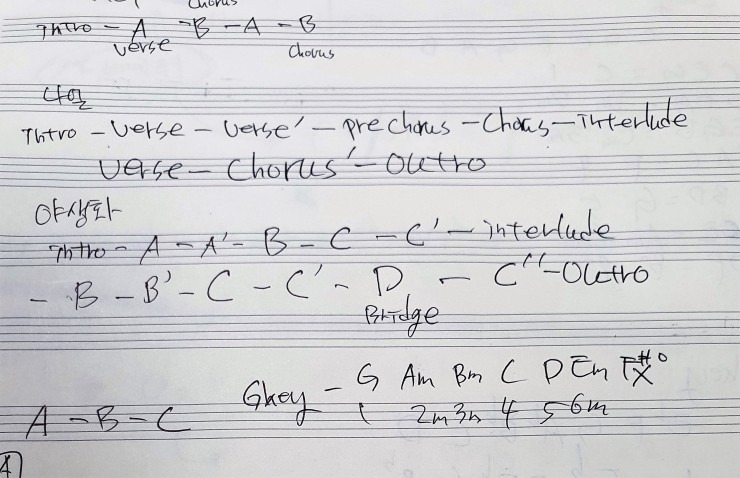 Chorus
Intro - A - B - A - B
verse Chorus
나일
Intro - Verse - Verse' - prechorus - Chorus - interlude
Verse - Chorus' - Outro
야생화
Intro - A - A' - B - C - C' - interlude
- B - B' - C - C' - D - C'' - Outro
Bridge
Gkey - G Am Bm C D Em F#°
1 2m 3m 4 5 6m X
A - B - C